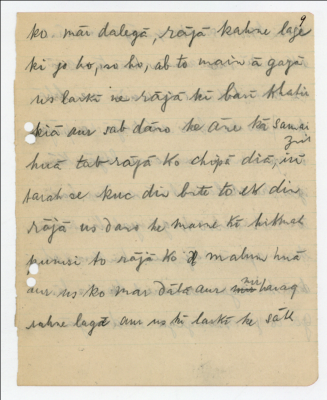 9
ko mār dalegā, rājā kahne lage
ki jo ho, so ho, ab to main ā gayā
us laṛkī ne rājā kī baṛī khatir
kiā aur sab dāno ke āne kā samai
huā tab rājā ko chipā diā, isī
tarah se kuc din bite to ek din
rājā us dano ke marne kī hikmat
to rājā ko malum huā
aur us ko mar dālā aur
rahne lagā aur us kī laṛkī ke sāth